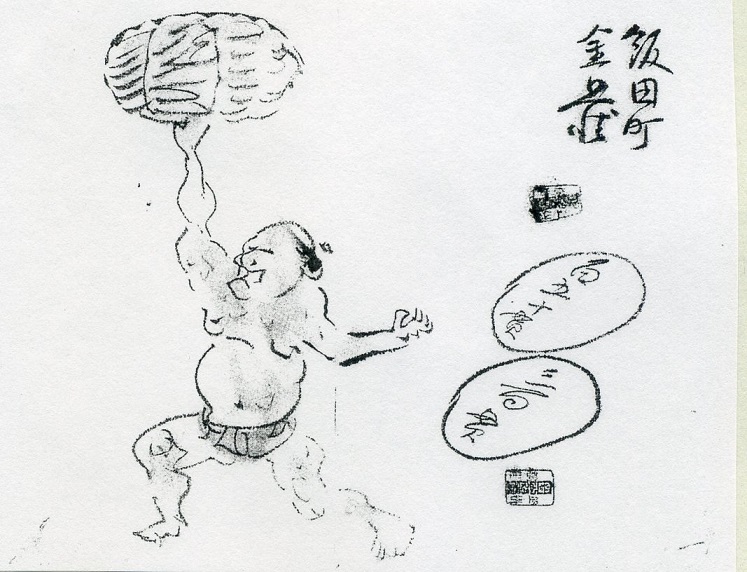 飯田町
金
百五十貫
三百貫